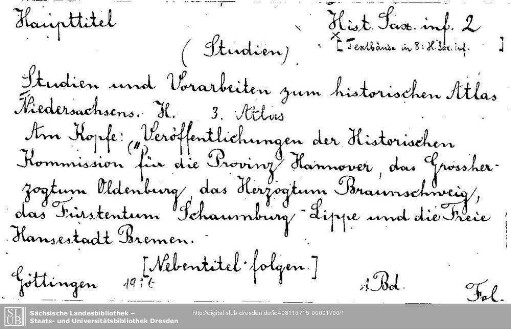 Haupttitel
Hist. Sax. inf. 2
[Textbände in 8: H. Sax. inf. ]
(Studien)
Studien und Vorarbeiten zum historischen Atlas
Niedersachsens. H. 3. Atlas
Am Kopfe: "Veröffentlichungen der Historischen
Kommission für die Provinz Hannover, das Grossher-
zogtum Oldenburg, das Herzogtum Braunschweig,
das Fürstentum Schaumburg-Lippe und die Freie
Hansestadt Bremen.
[Nebentitel folgen.]
Göttingen
1 Bd.
Fol.
SLUB
Sächsische Landesbibliothek –
Staats- und Universitätsbibliothek Dresden